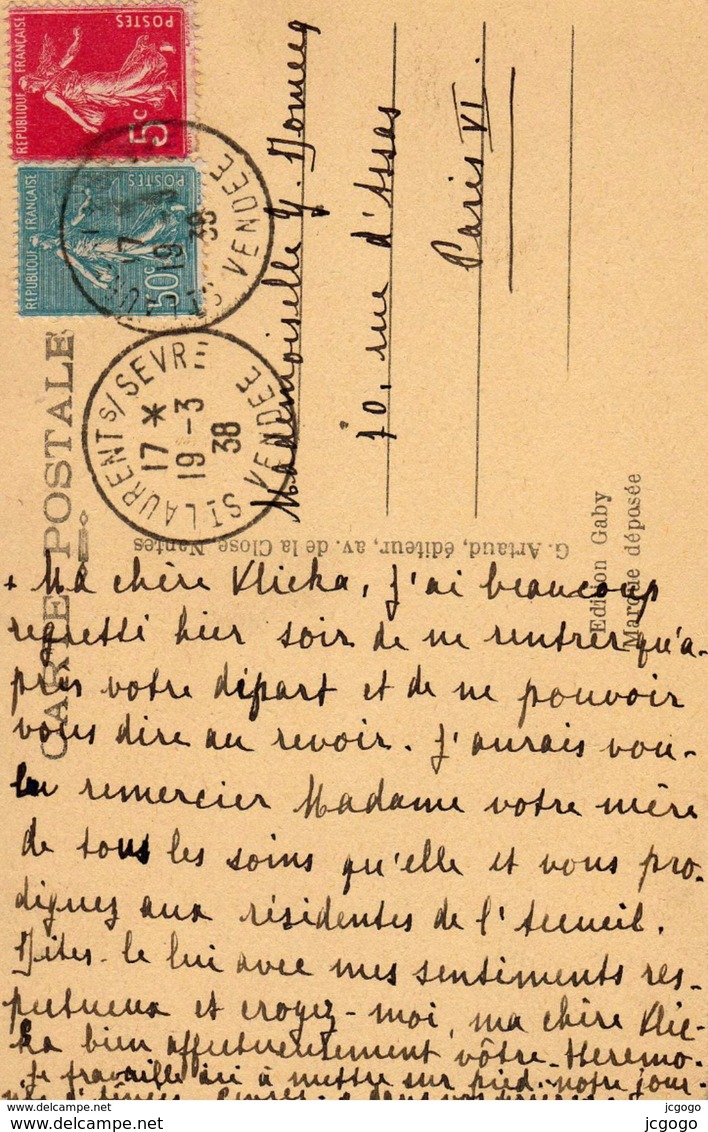 POSTES
RÉPUBLIQUE FRANÇAISE
5c
POSTES
RÉPUBLIQUE FRANÇAISE
50c
17
19
38
VENDÉE
ST LAURENT S/ SEVRE
17 *
19 -3
38
VENDÉE
CARTE POSTALE
Mademoiselle Y.
70, rue d'Assas
Paris VI.
G. Artaud, éditeur, av. de la Close, Nantes
Edition Gaby
Marque déposée
+ Ma chère Klicka, j'ai beaucoup
regretté hier soir de ne rentrer qu'a-
près votre départ et de ne pouvoir
vous dire au revoir. J'aurais vou-
lu remercier Madame votre mère
de tous les soins qu'elle et vous pro-
diguez aux résidentes de l'Accueil.
Dites-le lui avec mes sentiments res-
pectueux et croyez-moi, ma chère Klic-
ka bien affectueusement vôtre.
Je travaille ici à mettre sur pied notre jour-
www.delcampe.net
jcgogo
jcgogo